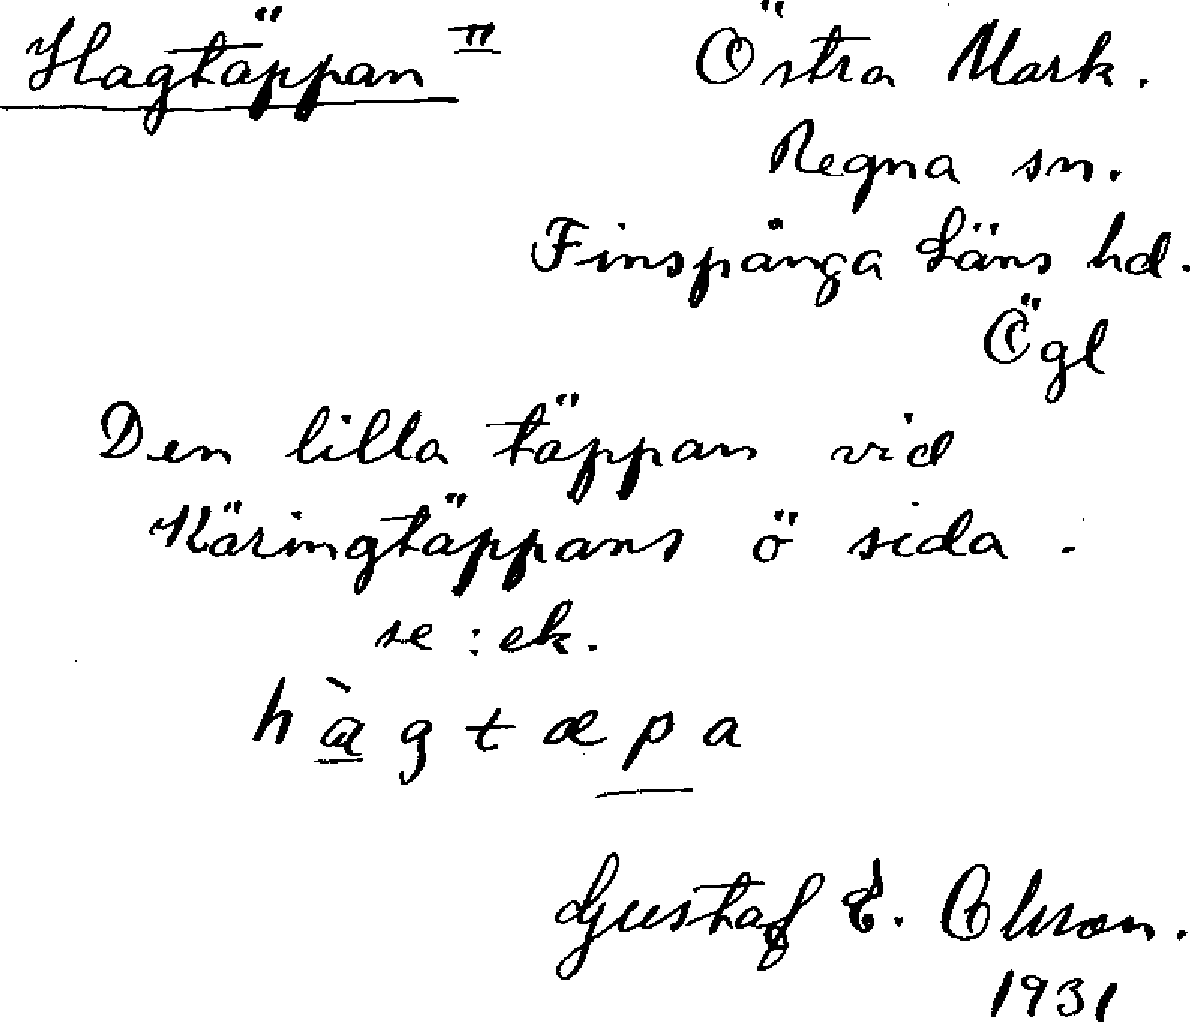 Hagtäppan II Östra Mark.
Regna sn.
Finspånga Läns hd.
Ögl
Den lilla täppan vid
Käringtäppans ö sida.
se : ek.
hàgtæpa
Gustaf E.
1931